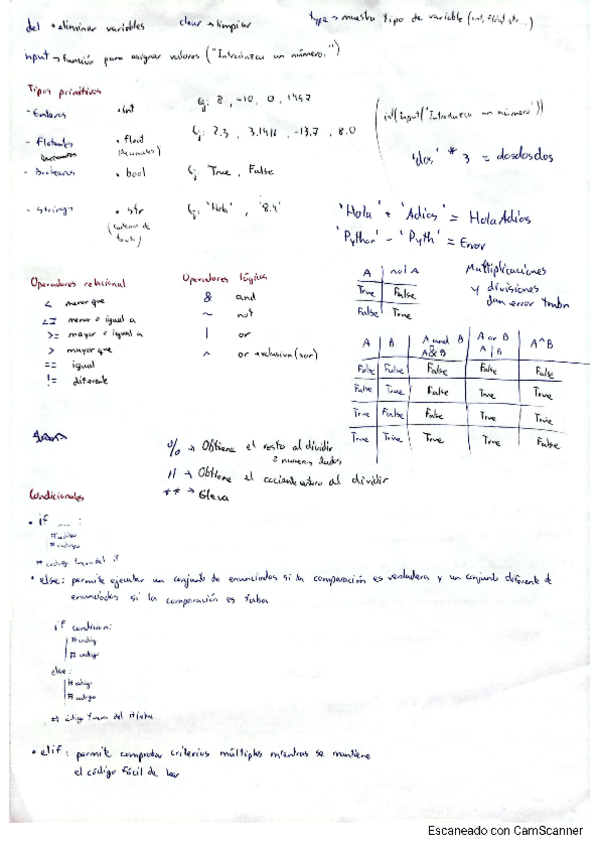 del → eliminar variables    clear → limpiar    type → muestra tipo de variable (int, float, str...)
input → función para asignar valores ("Introduzca un número:")
Tipos primitivos
- Enteros    • int    Ej: 8, -10, 0, 1447    int(input("Introduzca un número"))
- Flotantes    • float    Ej: 2.3, 3.1416, -13.7, 8.0
(decimales)    'dos' * 3 = dosdosdos
- Booleanos    • bool    Ej: True, False
- Strings    • str    Ej: 'Hola', '8.4'
(cadenas de
'Hola' + 'Adios' = HolaAdios
'Python' - 'Pyth' = Error
Multiplicaciones
y divisiones
dan error tmbn
Operadores relacional
< menor que
<= menor o igual a
>= mayor o igual a
> mayor que
== igual
!= diferente
Operadores lógicos
& and
~ not
| or
^ or exclusiva (xor)
A    not A
True    False
False    True
A    B    A and B    A or B    A^B
A&B    A|B
False    False    False    False    False
False    True    False    True    True
True    False    False    True    True
True    True    True    True    False
% → Obtiene el resto al dividir
2 números
// → Obtiene el cociente entero al dividir
** → Eleva
Condicionales
• if ___ :
# código
# código
# código fuera del if
• else: permite ejecutar un conjunto de enunciados si la comparación es verdadera y un conjunto diferente de
enunciados si la comparación es falsa
if condicion:
# código
# código
else:
# código
# código
# código fuera del if/else
• elif: permite comprobar criterios múltiples mientras se mantiene
el código fácil de leer
Escaneado con CamScanner